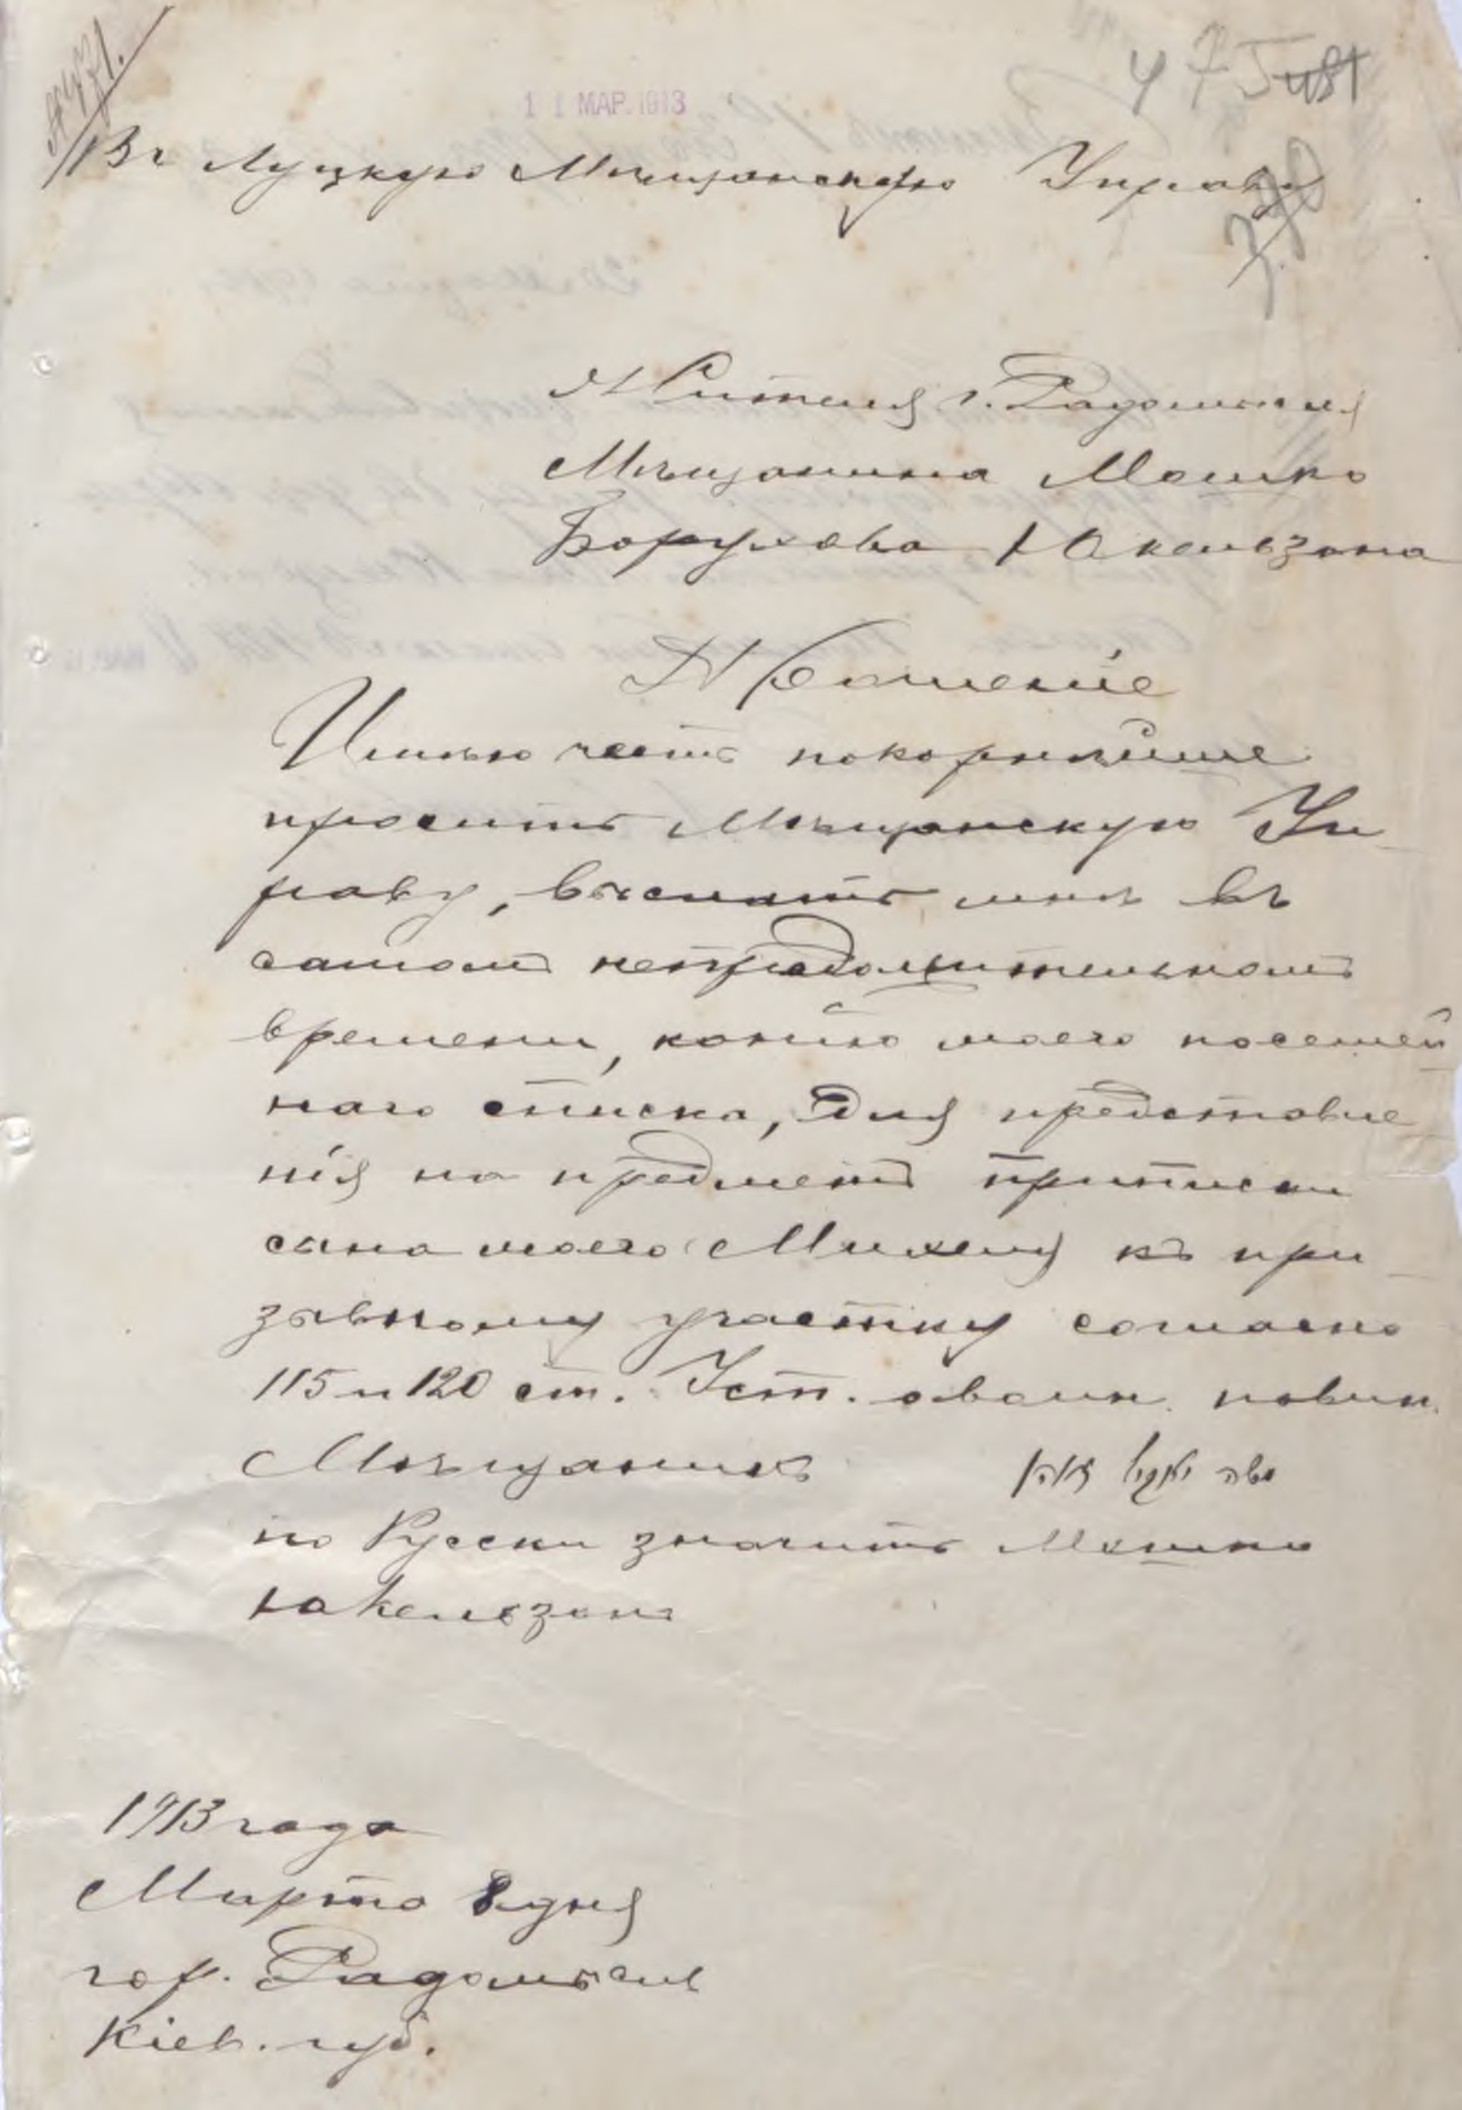 № 471.
11 МАР. 1913
475 481
Въ Луцкую Мѣщанскую Управу
Жителя г. Радомысля
Мѣщанина Мошко
Борухова Юкельзона
Прошеніе
Имѣю честь покорнѣйше
просить Мѣщанскую Уп-
раву, выслать мнѣ въ
самомъ непродолжительномъ
времени, копію моего посемей
наго списка, для представле
нія на предметъ приписки
сына моего Михеля къ при-
зывному участку согласно
115 и 120 ст. Уст. о воин. повин.
Мѣщанинъ משה יאקיל זאהן
по Русски значитъ Мошко
Юкельзонъ
1913 года
Марта 8 дня
гор. Радомысль
Кіев. губ.